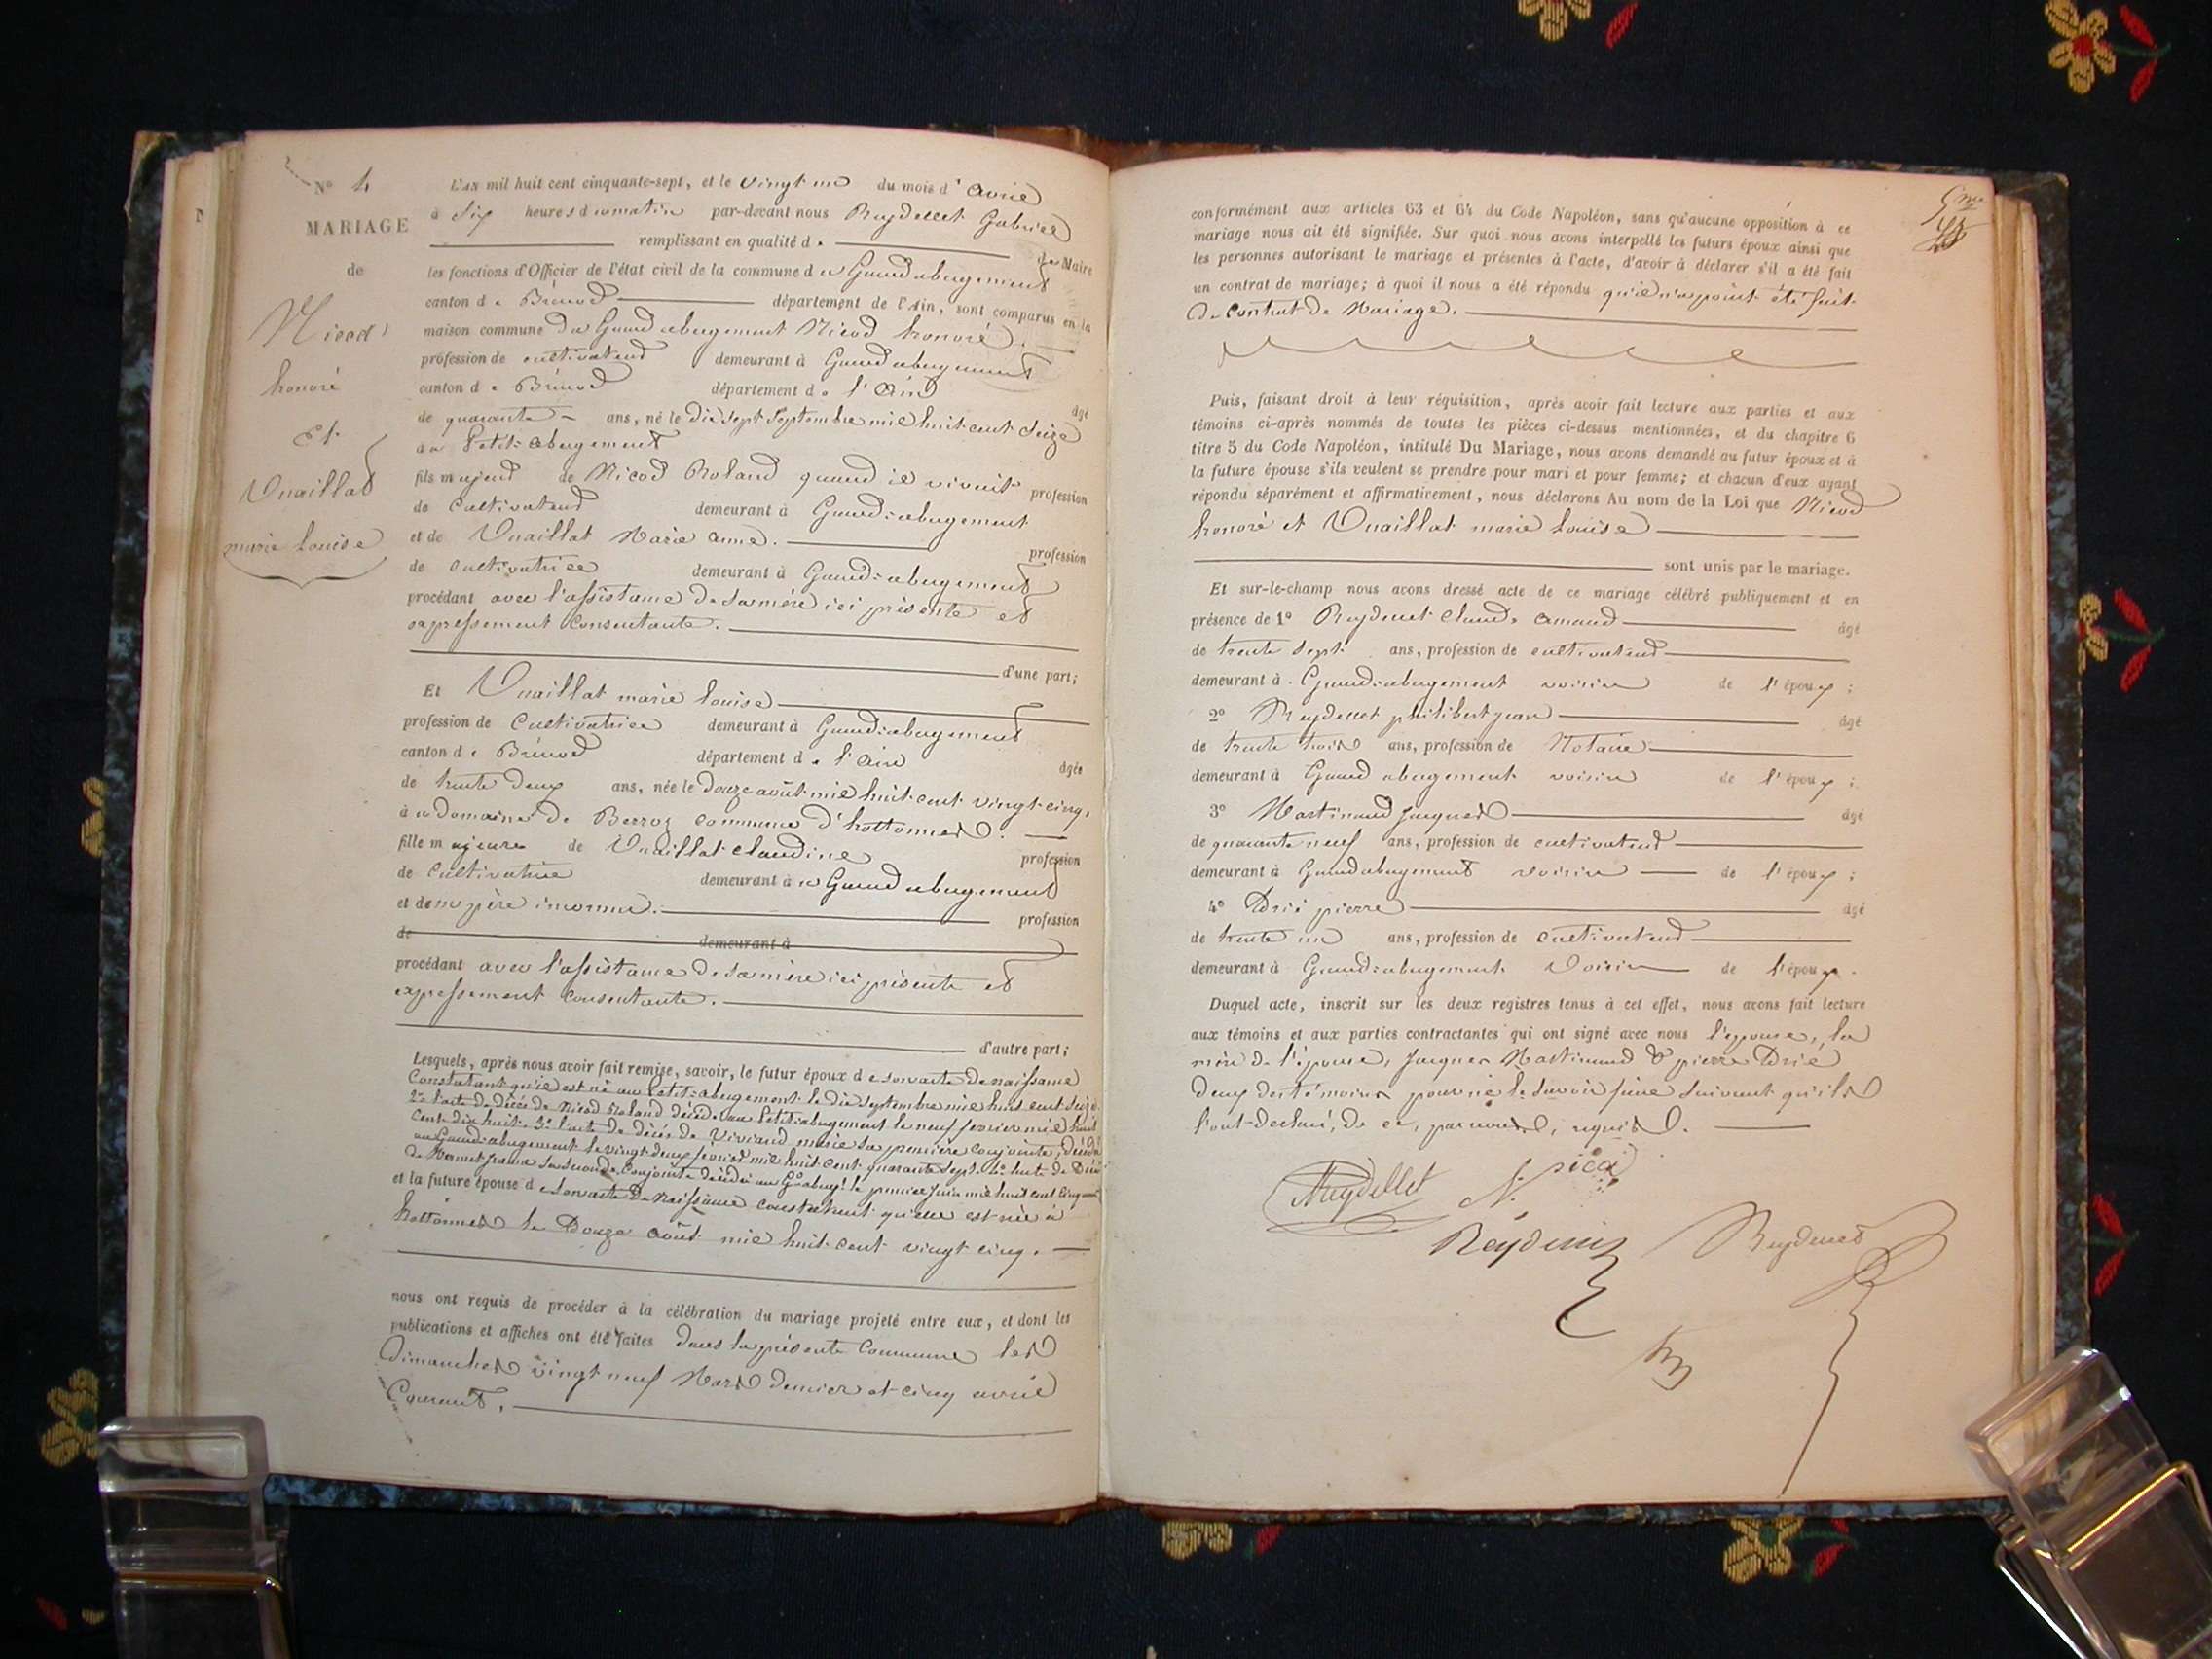 N° 4
MARIAGE
de
Nicod
honoré
Et
Vuaillat
marie Louise
L'AN mil huit cent cinquante-sept, et le vingt un du mois d'avril
à Six heures du matin par-devant nous Reydellet Gabriel
remplissant en qualité de Maire
les fonctions d'Officier de l'état civil de la commune du Grand abergement
canton de Brénod département de l'Ain, sont comparus en la
maison commune du Grand abergement Nicod honoré.
profession de cultivateur demeurant à Grand abergement
canton de Brénod département de l'Ain âgé
de quarante ans, né le dix sept Septembre mil huit cent Seize
au Petit abergement
fils majeur de Nicod Roland quand il vivait profession
de Cultivateur demeurant à Grand-abergement
et de Vuaillat Marie anne. profession
de cultivatrice demeurant à Grand-abergement
procédant avec l'assistance de sa mère ici présente et
expressement consentante.
d'une part;
Et Vuaillat marie Louise
profession de Cultivatrice demeurant à Grand-abergement
canton de Brénod département de l'Ain âgée
de trente deux ans, née le douze août mil huit cent vingt-cinq,
à domaine de commune d'hottonnes.
fille majeure de Vuaillat Claudine profession
de Cultivatrice demeurant à Grand abergement
et de son père inconnu. profession
de demeurant à
procédant avec l'assistance de sa mère ici présente et
expressement consentante.
d'autre part;
Lesquels, après nous avoir fait remise, savoir, le futur époux de son acte de naissance
Constatant qu'il est né au Petit-abergement le dix septembre mil huit cent Seize
2° l'acte de décès de Nicod Roland décédé au Petit-abergement le neuf janvier mil huit
cent dix huit. 3° l'acte de décès de Viviand marie sa première conjointe, décédé
au Grand-abergement le vingt deux février mil huit cent quarante sept. 4° l'acte de Décès
de sa seconde Conjointe décédée au Gd aberg! le premier juin mil huit cent cinquante
et la future épouse de son acte de Naissance constatant qu'elle est née à
hottonnes le Douze août mil huit cent vingt cinq.
nous ont requis de procéder à la célébration du mariage projeté entre eux, et dont les
publications et affiches ont été faites dans la présente Commune les
Dimanches vingt neuf Mars dernier et cinq avril
Courant.
5me
conformément aux articles 63 et 64 du Code Napoléon, sans qu'aucune opposition à ce
mariage nous ait été signifiée. Sur quoi nous avons interpellé les futurs époux ainsi que
les personnes autorisant le mariage et présentes à l'acte, d'avoir à déclarer s'il a été fait
un contrat de mariage; à quoi il nous a été répondu qu'il n'a point été fait
de Contrat de Mariage.
Puis, faisant droit à leur réquisition, après avoir fait lecture aux parties et aux
témoins ci-après nommés de toutes les pièces ci-dessus mentionnées, et du chapitre 6
titre 5 du Code Napoléon, intitulé Du Mariage, nous avons demandé au futur époux et à
la future épouse s'ils veulent se prendre pour mari et pour femme; et chacun d'eux ayant
répondu séparément et affirmativement, nous déclarons Au nom de la Loi que Nicod
honoré et Vuaillat marie Louise
sont unis par le mariage.
Et sur-le-champ nous avons dressé acte de ce mariage célébré publiquement et en
présence de 1° Reydellet Claude amand âgé
de trente sept ans, profession de cultivateur
demeurant à Grand-abergement voisin de l'époux;
2° Reydellet philibert jean âgé
de trente trois ans, profession de Notaire
demeurant à Grand abergement voisin de l'époux;
3° Martinand Jacques âgé
de quarante neuf ans, profession de cultivateur
demeurant à Grand abergement voisin de l'époux;
4° Drié pierre âgé
de trente un ans, profession de Cultivateur
demeurant à Grand-abergement Voisin de l'époux.
Duquel acte, inscrit sur les deux registres tenus à cet effet, nous avons fait lecture
aux témoins et aux parties contractantes qui ont signé avec nous l'épouse, la
mère de l'épouse, Jacques Martinand & pierre Drié
deux des témoins pour ne le savoir faire suivant qu'ils
l'ont déclaré, de ce, par nous, requis.
Reydellet
Reydellet